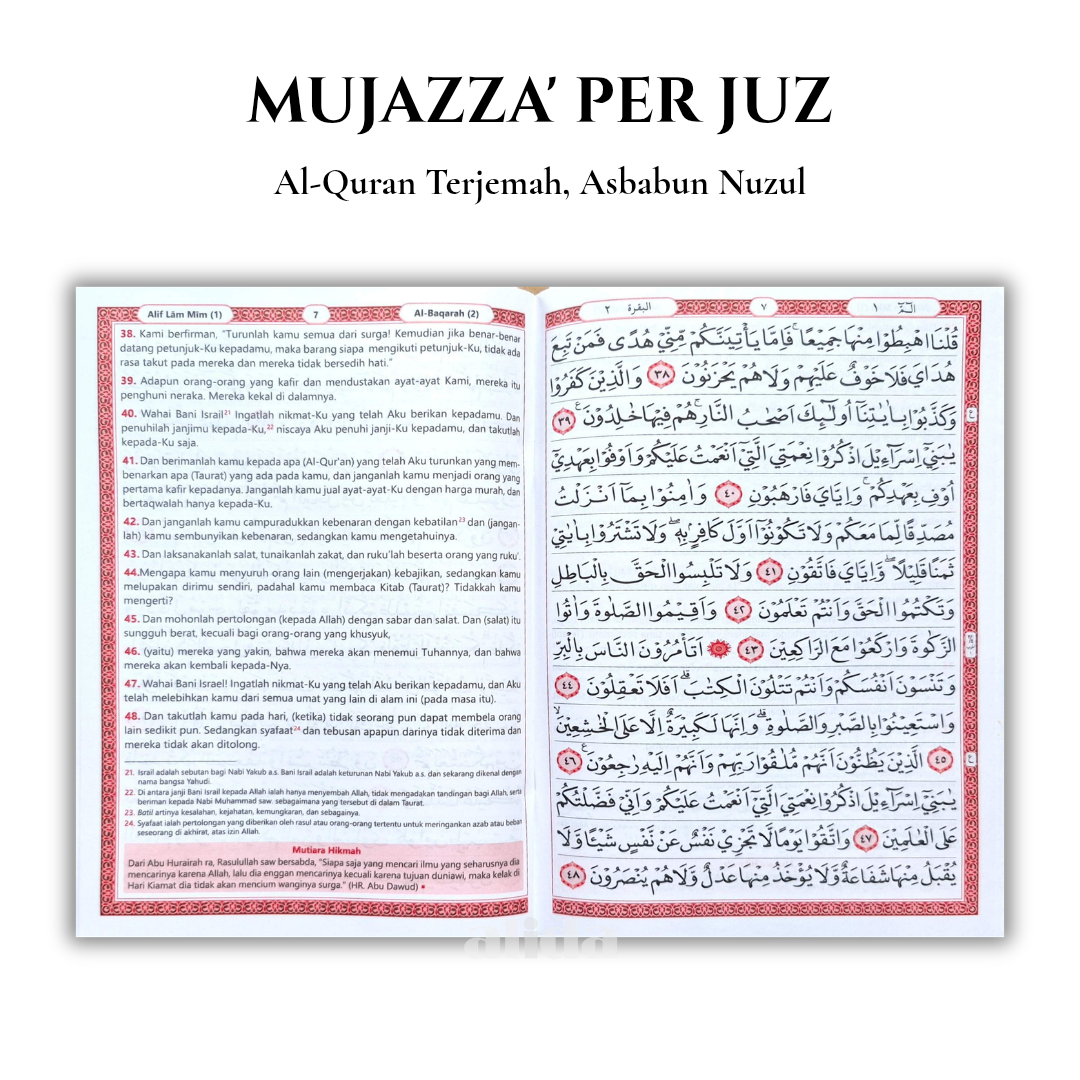 MUJAZZA' PER JUZ
Al-Quran Terjemah, Asbabun Nuzul
Alif Lām Mīm (1) 7 Al-Baqarah (2)
38. Kami berfirman, "Turunlah kamu semua dari surga! Kemudian jika benar-benar
datang petunjuk-Ku kepadamu, maka barang siapa mengikuti petunjuk-Ku, tidak ada
rasa takut pada mereka dan mereka tidak bersedih hati."
39. Adapun orang-orang yang kafir dan mendustakan ayat-ayat Kami, mereka itu
penghuni neraka. Mereka kekal di dalamnya.
40. Wahai Bani Israil²¹ Ingatlah nikmat-Ku yang telah Aku berikan kepadamu. Dan
penuhilah janjimu kepada-Ku,²² niscaya Aku penuhi janji-Ku kepadamu, dan takutlah
kepada-Ku saja.
41. Dan berimanlah kamu kepada apa (Al-Qur'an) yang telah Aku turunkan yang mem-
benarkan apa (Taurat) yang ada pada kamu, dan janganlah kamu menjadi orang yang
pertama kafir kepadanya. Janganlah kamu jual ayat-ayat-Ku dengan harga murah, dan
bertaqwalah hanya kepada-Ku.
42. Dan janganlah kamu campuradukkan kebenaran dengan kebatilan²³ dan (jangan-
lah) kamu sembunyikan kebenaran, sedangkan kamu mengetahuinya.
43. Dan laksanakanlah salat, tunaikanlah zakat, dan ruku'lah beserta orang yang ruku'.
44.Mengapa kamu menyuruh orang lain (mengerjakan) kebajikan, sedangkan kamu
melupakan dirimu sendiri, padahal kamu membaca Kitab (Taurat)? Tidakkah kamu
mengerti?
45. Dan mohonlah pertolongan (kepada Allah) dengan sabar dan salat. Dan (salat) itu
sungguh berat, kecuali bagi orang-orang yang khusyuk,
46. (yaitu) mereka yang yakin, bahwa mereka akan menemui Tuhannya, dan bahwa
mereka akan kembali kepada-Nya.
47. Wahai Bani Israel! Ingatlah nikmat-Ku yang telah Aku berikan kepadamu, dan Aku
telah melebihkan kamu dari semua umat yang lain di alam ini (pada masa itu).
48. Dan takutlah kamu pada hari, (ketika) tidak seorang pun dapat membela orang
lain sedikit pun. Sedangkan syafaat²⁴ dan tebusan apapun darinya tidak diterima dan
mereka tidak akan ditolong.
21. Israil adalah sebutan bagi Nabi Yakub a.s. Bani Israil adalah keturunan Nabi Yakub a.s. dan sekarang dikenal dengan
nama bangsa Yahudi.
22. Di antara janji Bani Israil kepada Allah ialah hanya menyembah Allah, tidak mengadakan tandingan bagi Allah, serta
beriman kepada Nabi Muhammad saw. sebagaimana yang tersebut di dalam Taurat.
23. Batil artinya kesalahan, kejahatan, kemungkaran, dan sebagainya.
24. Syafaat ialah pertolongan yang diberikan oleh rasul atau orang-orang tertentu untuk meringankan azab atau beban
seseorang di akhirat, atas izin Allah.
Mutiara Hikmah
Dari Abu Hurairah ra, Rasulullah saw bersabda, "Siapa saja yang mencari ilmu yang seharusnya dia
mencarinya karena Allah, lalu dia enggan mencarinya kecuali karena tujuan duniawi, maka kelak di
Hari Kiamat dia tidak akan mencium wanginya surga." (HR. Abu Dawud)
الٓمّٓ ١ ٧ البقرة ٢
قُلْنَا اهْبِطُوْا مِنْهَا جَمِيْعًا ۚ فَاِمَّا يَأْتِيَنَّكُمْ مِّنِّيْ هُدًى فَمَنْ تَبِعَ
هُدَايَ فَلَا خَوْفٌ عَلَيْهِمْ وَلَا هُمْ يَحْزَنُوْنَ ٣٨ وَالَّذِيْنَ كَفَرُوْا
وَكَذَّبُوْا بِاٰيٰتِنَآ اُولٰۤىِٕكَ اَصْحٰبُ النَّارِ ۚ هُمْ فِيْهَا خٰلِدُوْنَ ٣٩
يٰبَنِيْٓ اِسْرَاۤءِيْلَ اذْكُرُوْا نِعْمَتِيَ الَّتِيْٓ اَنْعَمْتُ عَلَيْكُمْ وَاَوْفُوْا بِعَهْدِيْٓ
اُوْفِ بِعَهْدِكُمْ ۚ وَاِيَّايَ فَارْهَبُوْنِ ٤٠ وَاٰمِنُوْا بِمَآ اَنْزَلْتُ
مُصَدِّقًا لِّمَا مَعَكُمْ وَلَا تَكُوْنُوْٓا اَوَّلَ كَافِرٍۢ بِهٖ ۖ وَلَا تَشْتَرُوْا بِاٰيٰتِيْ
ثَمَنًا قَلِيْلًا ۖ وَّاِيَّايَ فَاتَّقُوْنِ ٤١ وَلَا تَلْبِسُوا الْحَقَّ بِالْبَاطِلِ
وَتَكْتُمُوا الْحَقَّ وَاَنْتُمْ تَعْلَمُوْنَ ٤٢ وَاَقِيْمُوا الصَّلٰوةَ وَاٰتُوا
الزَّكٰوةَ وَارْكَعُوْا مَعَ الرَّاكِعِيْنَ ٤٣ اَتَأْمُرُوْنَ النَّاسَ بِالْبِرِّ
وَتَنْسَوْنَ اَنْفُسَكُمْ وَاَنْتُمْ تَتْلُوْنَ الْكِتٰبَ ۗ اَفَلَا تَعْقِلُوْنَ ٤٤
وَاسْتَعِيْنُوْا بِالصَّبْرِ وَالصَّلٰوةِ ۗ وَاِنَّهَا لَكَبِيْرَةٌ اِلَّا عَلَى الْخٰشِعِيْنَ ۙ
٤٥ الَّذِيْنَ يَظُنُّوْنَ اَنَّهُمْ مُّلٰقُوْا رَبِّهِمْ وَاَنَّهُمْ اِلَيْهِ رٰجِعُوْنَ ٤٦
يٰبَنِيْٓ اِسْرَاۤءِيْلَ اذْكُرُوْا نِعْمَتِيَ الَّتِيْٓ اَنْعَمْتُ عَلَيْكُمْ وَاَنِّيْ فَضَّلْتُكُمْ
عَلَى الْعٰلَمِيْنَ ٤٧ وَاتَّقُوْا يَوْمًا لَّا تَجْزِيْ نَفْسٌ عَنْ نَّفْسٍ شَيْـًٔا وَّلَا
يُقْبَلُ مِنْهَا شَفَاعَةٌ وَّلَا يُؤْخَذُ مِنْهَا عَدْلٌ وَّلَا هُمْ يُنْصَرُوْنَ ٤٨